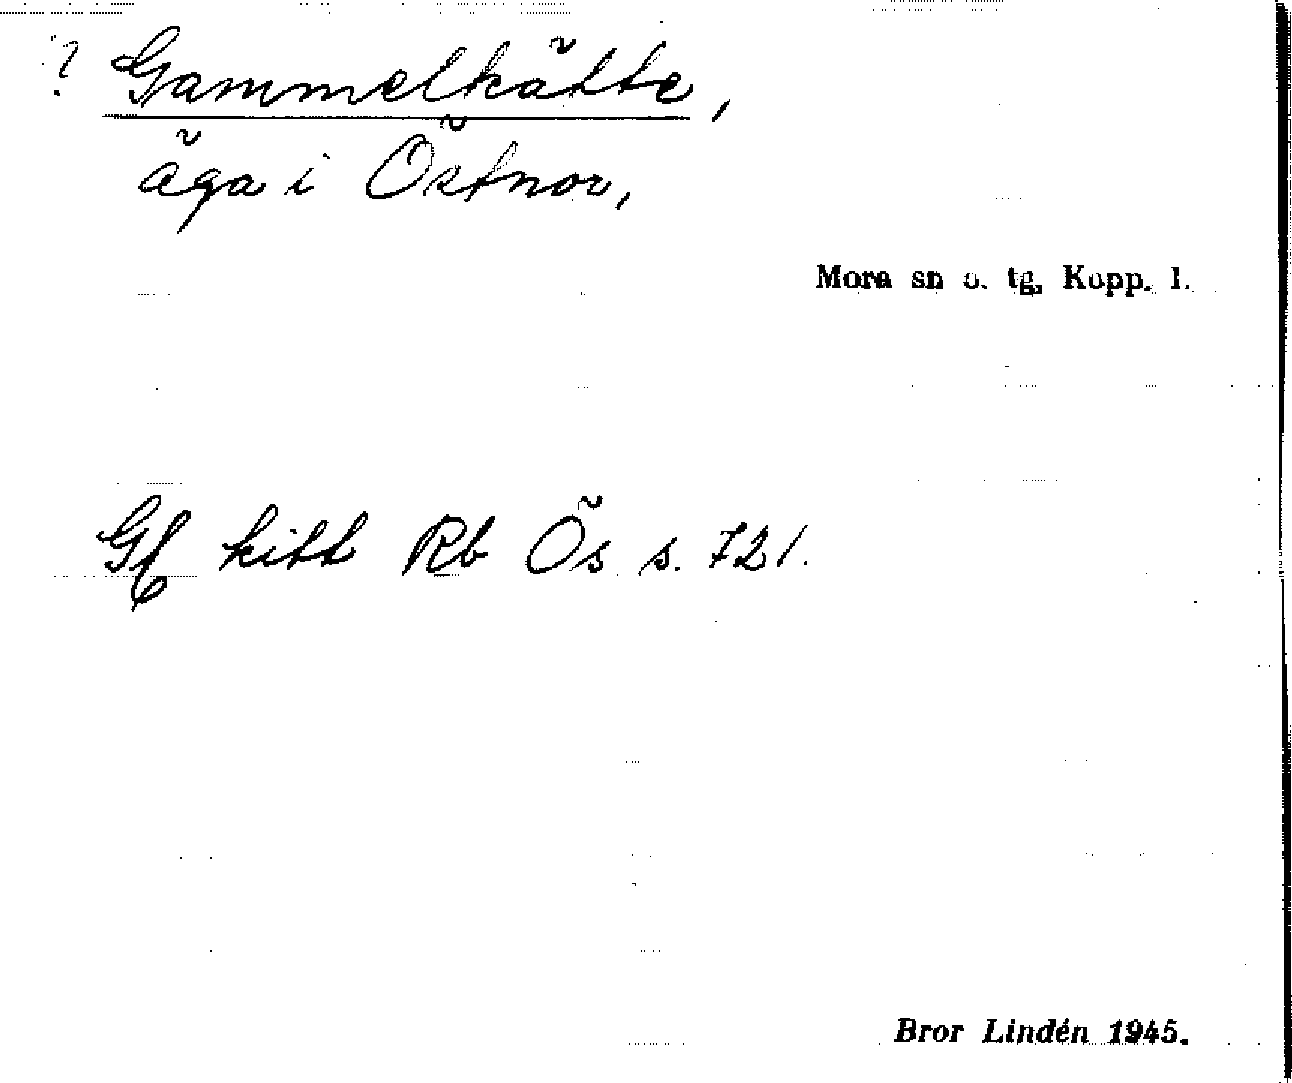 ? Gammelkätte,
äga i Östnor,
Mora sn o. tg, Kopp. l.
Gl kitt Rb Ös s. 721.
Bror Lindén 1945.